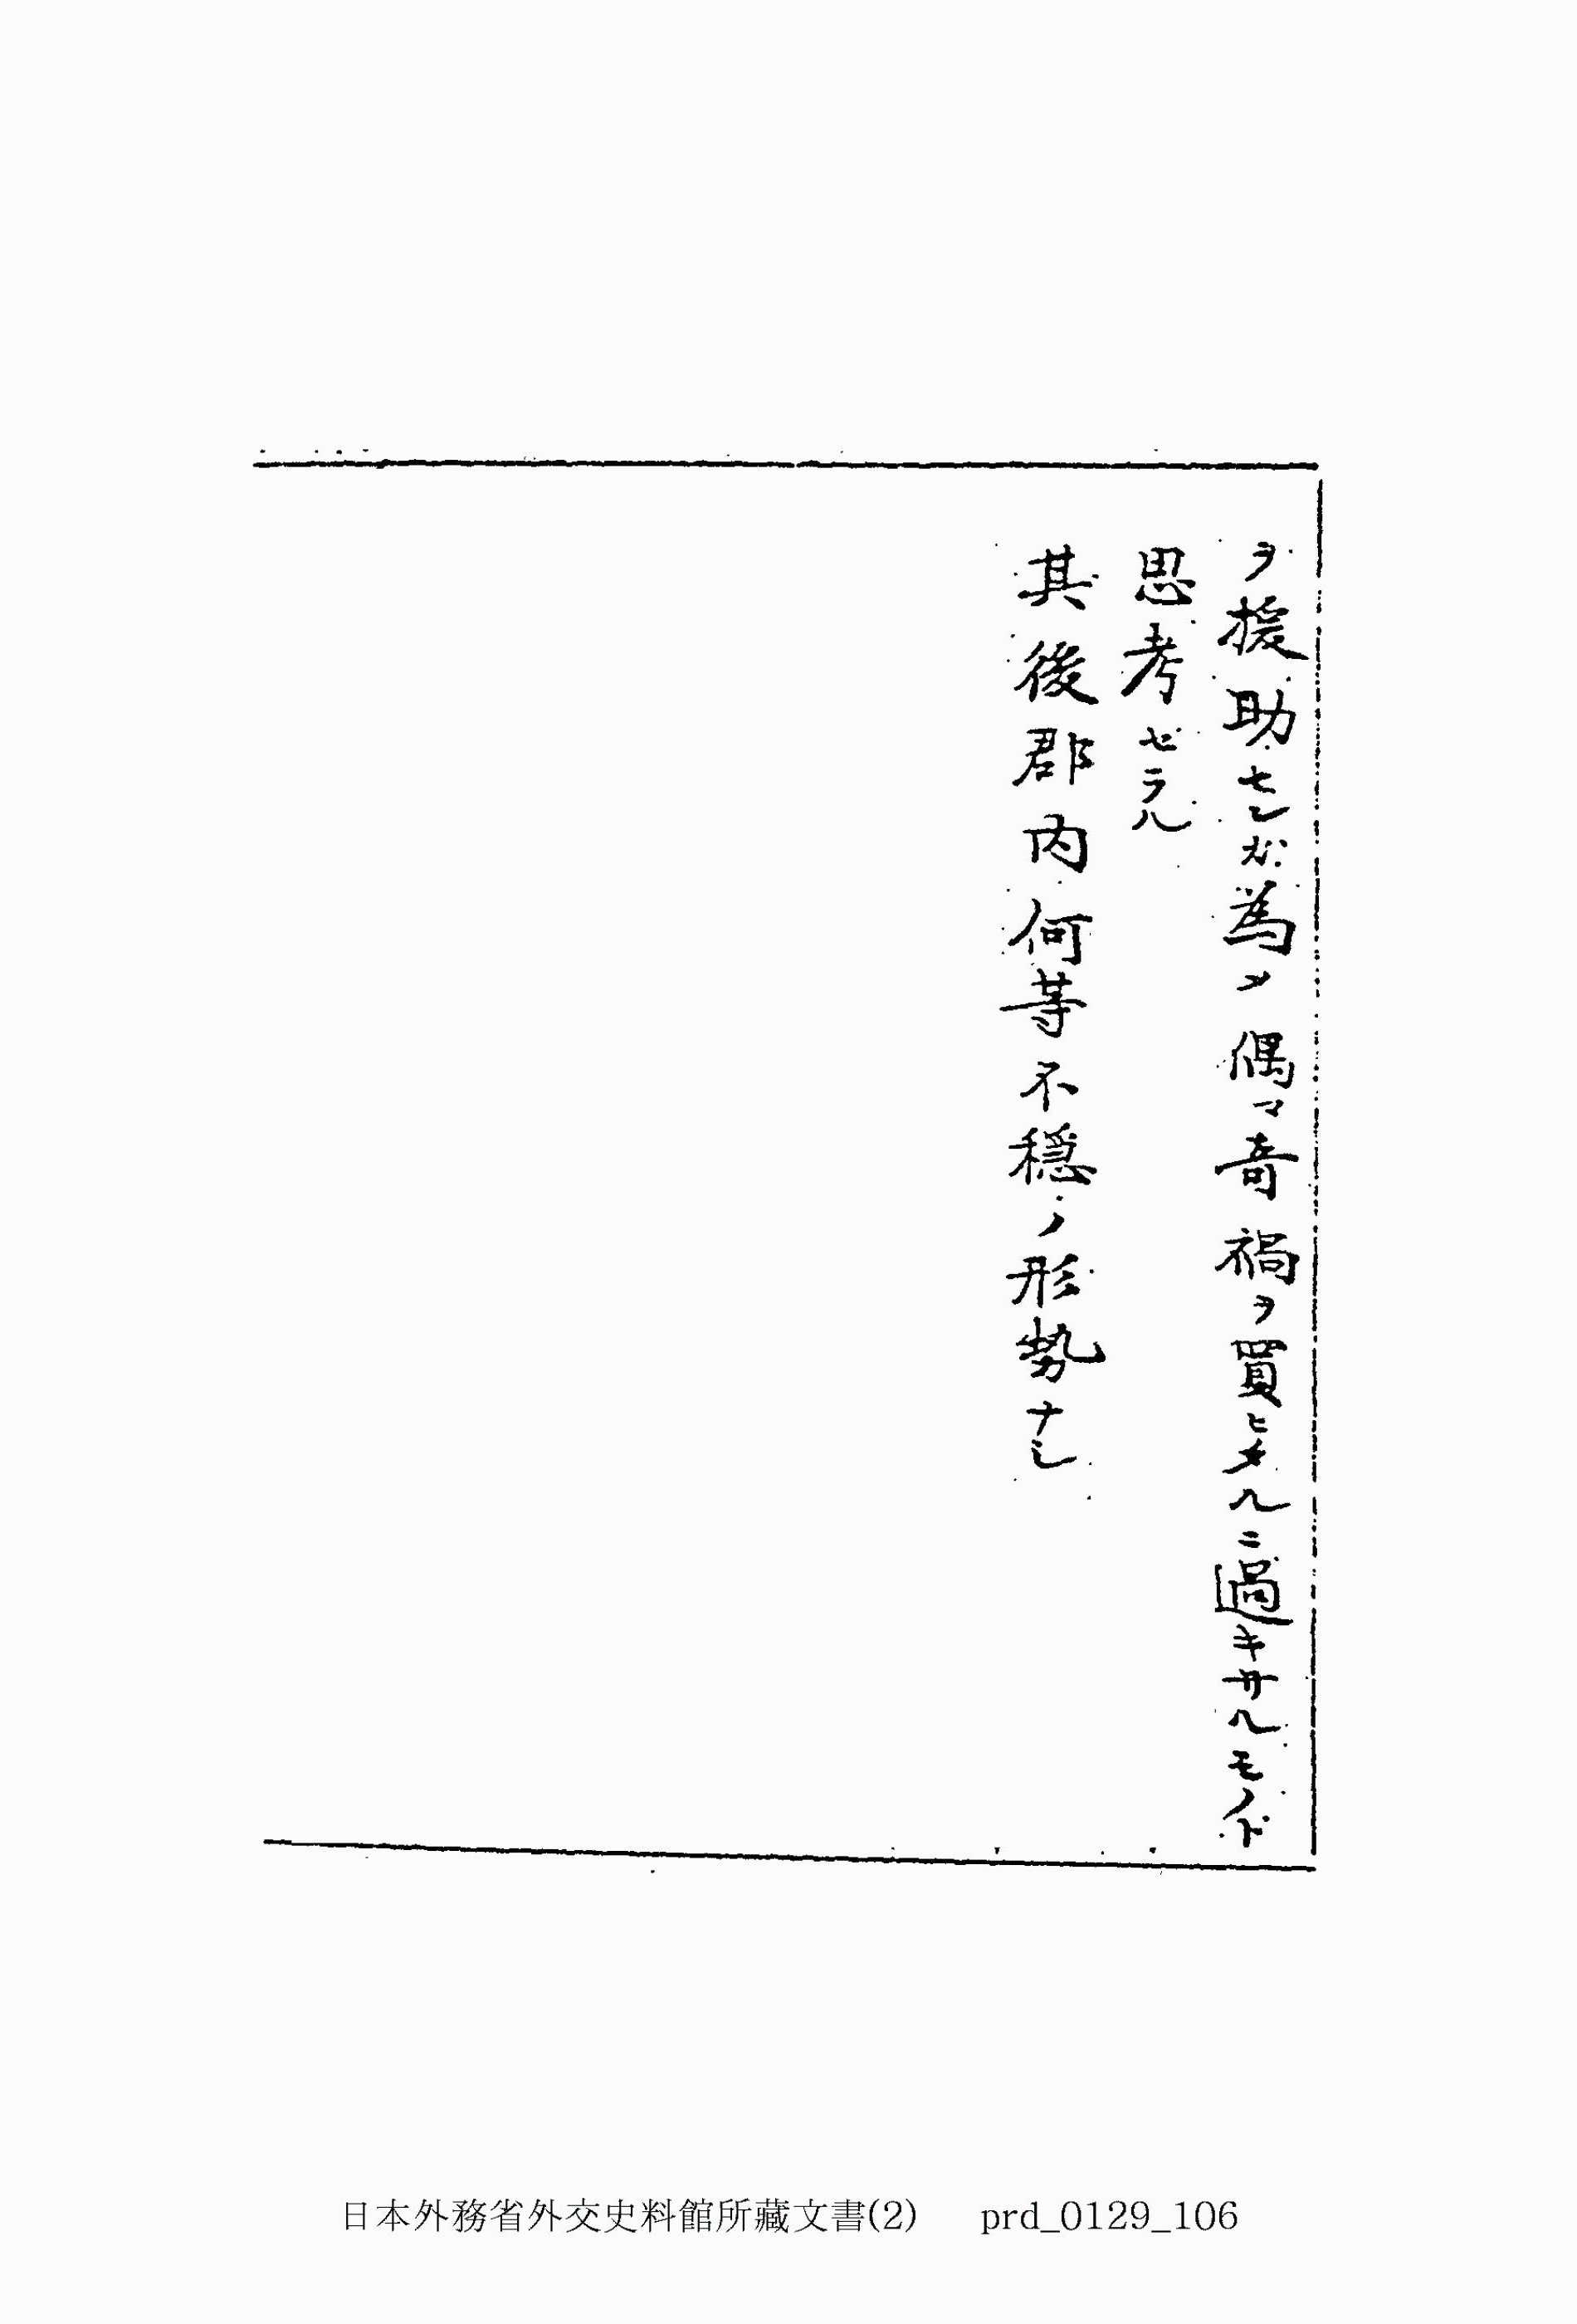 ヲ援助セシガ為メ偶々奇禍ヲ買ヒタルニ過キサルモノト
思考セラル
其後郡内何等不穏ノ形勢ナシ
日本外務省外交史料館所藏文書(2) prd_0129_106